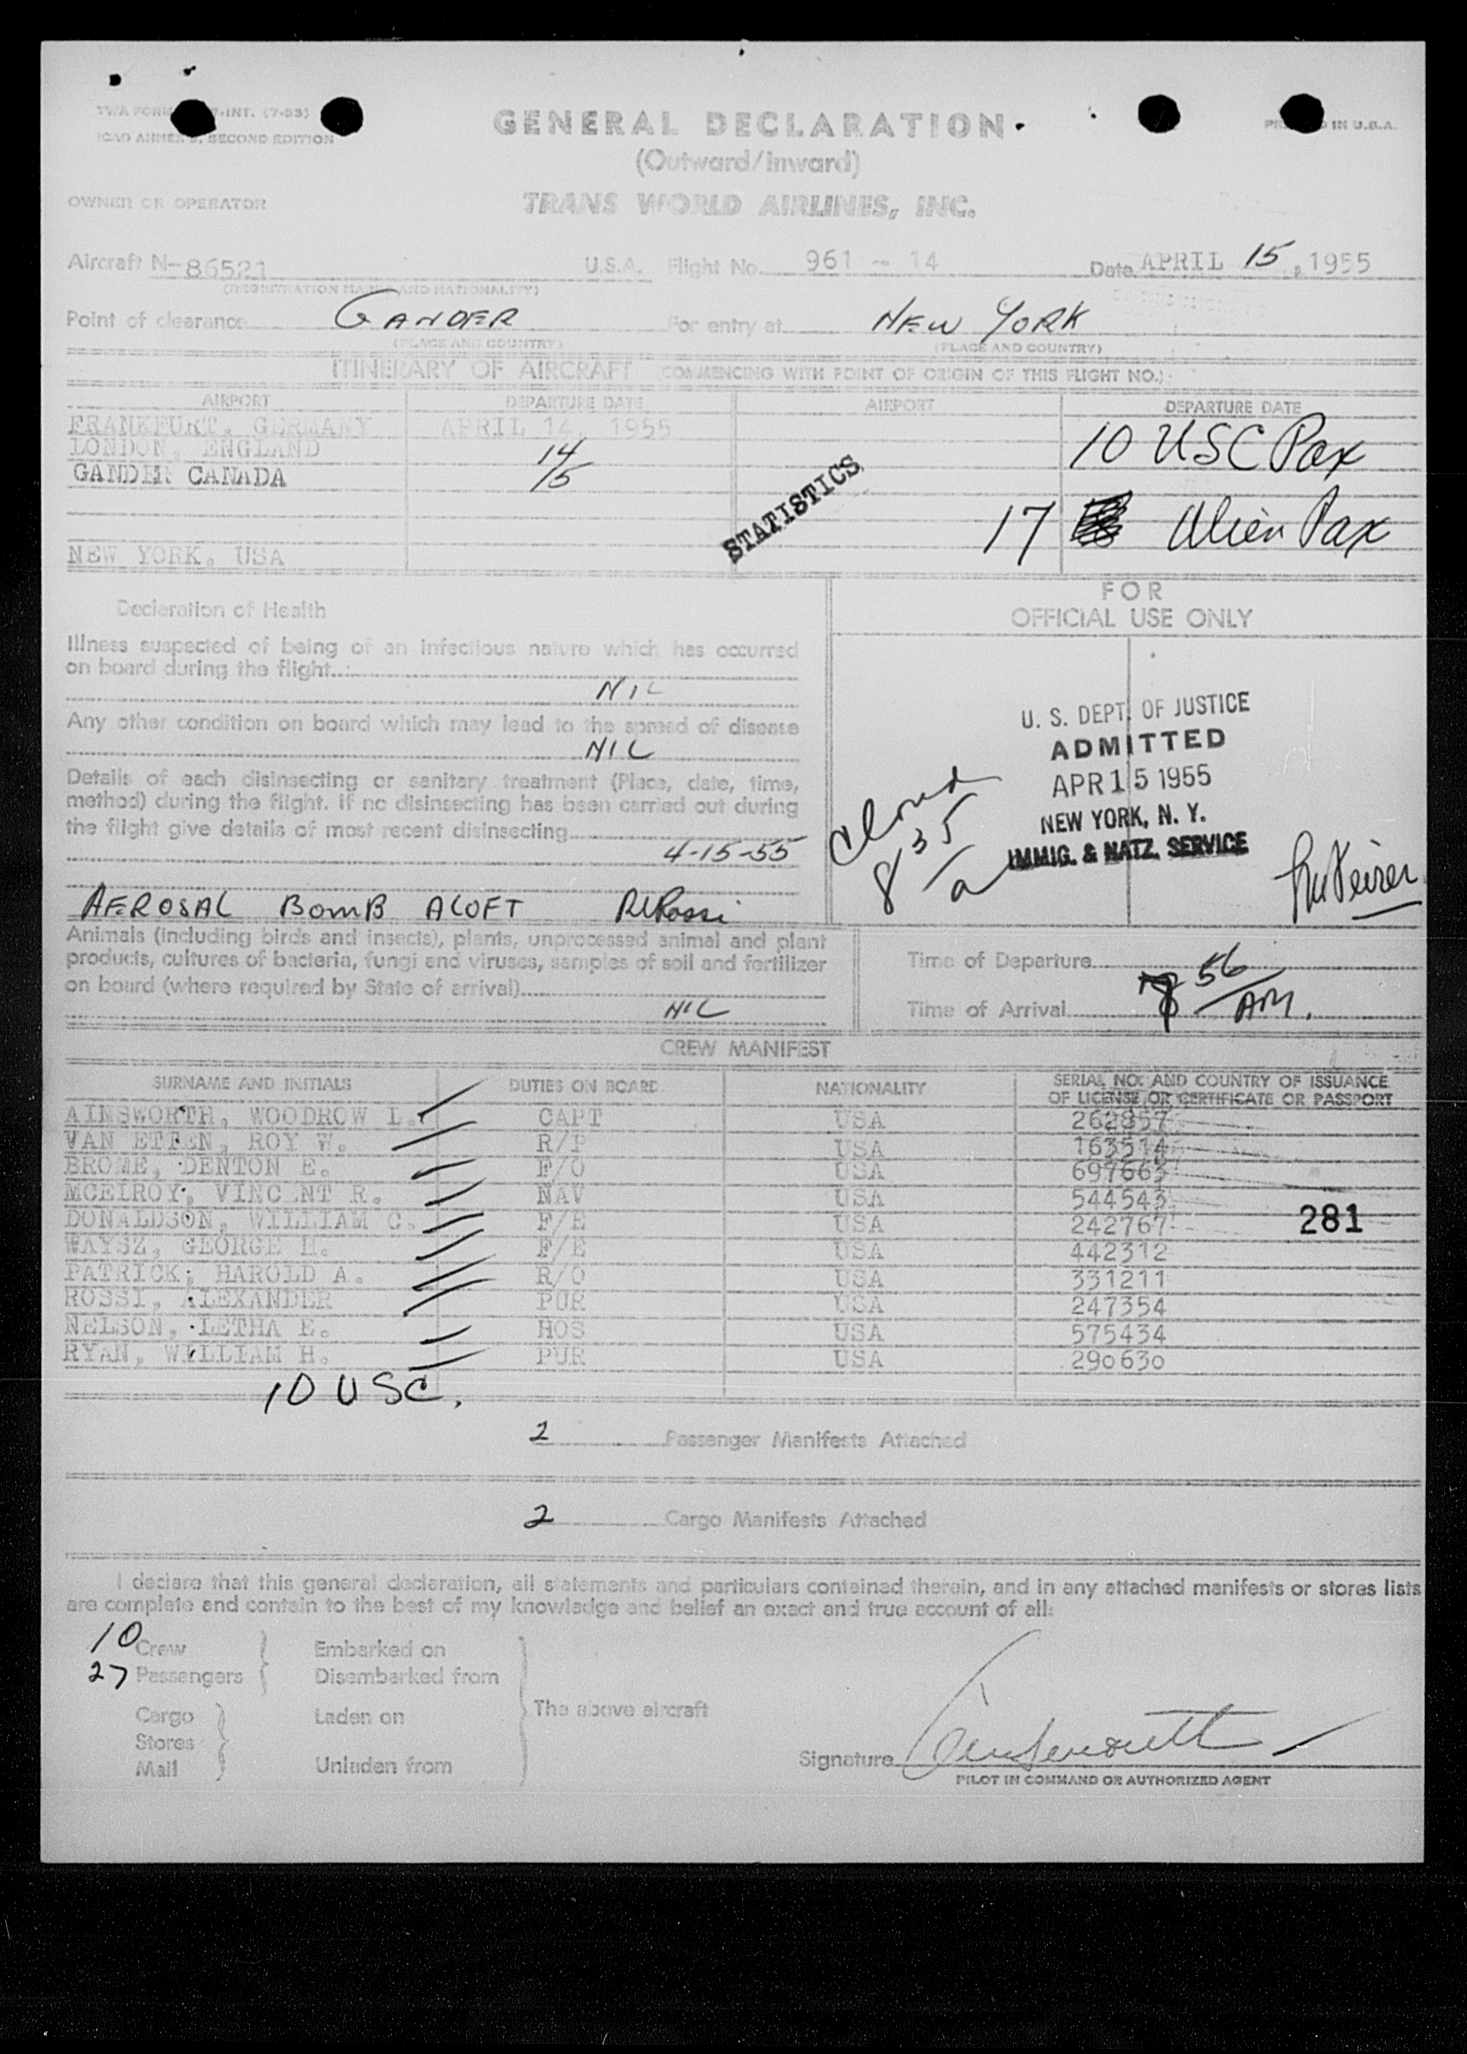 TWA FORM -INT. (7-53)
ICAO ANNEX 9, SECOND EDITION
GENERAL DECLARATION
(Outward/Inward)
PRINTED IN U.S.A.
OWNER OR OPERATOR TRANS WORLD AIRLINES, INC.
Aircraft N-86521 U.S.A. Flight No. 961 - 14 Date APRIL 15, 1955
(REGISTRATION MARKS AND NATIONALITY)
Point of clearance GANDER For entry at NEW YORK
(PLACE AND COUNTRY) (PLACE AND COUNTRY)
ITINERARY OF AIRCRAFT (COMMENCING WITH POINT OF ORIGIN OF THIS FLIGHT NO.)
AIRPORT DEPARTURE DATE AIRPORT DEPARTURE DATE
FRANKFURT, GERMANY APRIL 14, 1955
LONDON, ENGLAND 14 10 USC Pax
GANDER CANADA 15
STATISTICS
17 Alien Pax
NEW YORK, USA
Declaration of Health
FOR
OFFICIAL USE ONLY
Illness suspected of being of an infectious nature which has occurred
on board during the flight
NIL
Any other condition on board which may lead to the spread of disease
NIL
Details of each disinsecting or sanitary treatment (Place, date, time,
method) during the flight. If no disinsecting has been carried out during
the flight give details of most recent disinsecting
4-15-55
AEROSAL BOMB ALOFT
U. S. DEPT. OF JUSTICE
ADMITTED
APR 15 1955
NEW YORK, N. Y.
IMMIG. & NATZ. SERVICE
8 35
a
Animals (including birds and insects), plants, unprocessed animal and plant
products, cultures of bacteria, fungi and viruses, samples of soil and fertilizer
on board (where required by State of arrival)
NIL
Time of Departure
Time of Arrival 8 56 AM.
CREW MANIFEST
SURNAME AND INITIALS DUTIES ON BOARD NATIONALITY SERIAL NO. AND COUNTRY OF ISSUANCE
OF LICENSE OR CERTIFICATE OR PASSPORT
AINSWORTH, WOODROW L. CAPT USA 262857
VAN ETTEN, ROY W. R/P USA 163514
BROME, DENTON E. F/O USA 697663
MCELROY, VINCENT R. NAV USA 544543
DONALDSON, WILLIAM C. F/E USA 242767
281
WAYSZ, GEORGE H. F/E USA 442312
PATRICK, HAROLD A. R/O USA 331211
ROSSI, ALEXANDER PUR USA 247354
NELSON, LETHA E. HOS USA 575434
RYAN, WILLIAM H. PUR USA 290630
10 USC.
2 Passenger Manifests Attached
2 Cargo Manifests Attached
I declare that this general declaration, all statements and particulars contained therein, and in any attached manifests or stores lists
are complete and contain to the best of my knowledge and belief an exact and true account of all:
10 Crew Embarked on
27 Passengers Disembarked from
The above aircraft
Cargo Laden on
Stores
Mail Unladen from
Signature
PILOT IN COMMAND OR AUTHORIZED AGENT